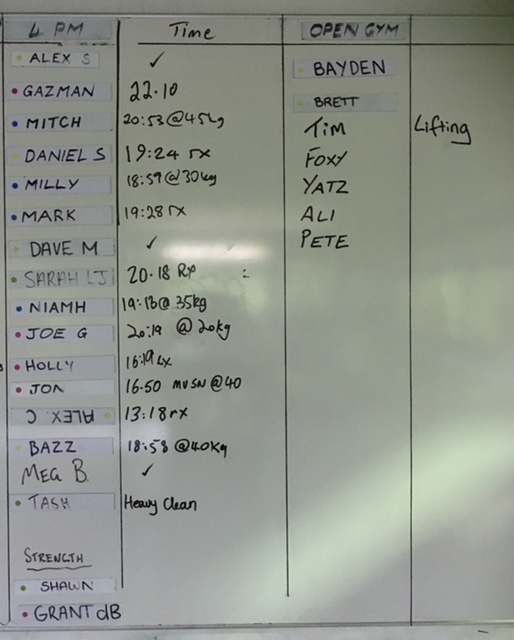 4 PM Time OPEN GYM
ALEX S ✓ BAYDEN
GAZMAN 22.10 BRETT
MITCH 20:53 @45kg TIM Lifting
DANIEL S 19:24 rx FOXY
MILLY 18:59 @30kg YATZ
MARK 19:28 rx ALI
DAVE M ✓ PETE
SARAH LJ 20.18 RX :
NIAMH 19:13 @ 35kg
JOE G 20:19 @ 20kg
HOLLY 16:19
JON 16.50 @40
ALEX C 13:18 rx
BAZZ 18:58 @40kg
MEG B. ✓
TASH Heavy Clean
STRENGTH
SHAWN
GRANT dB